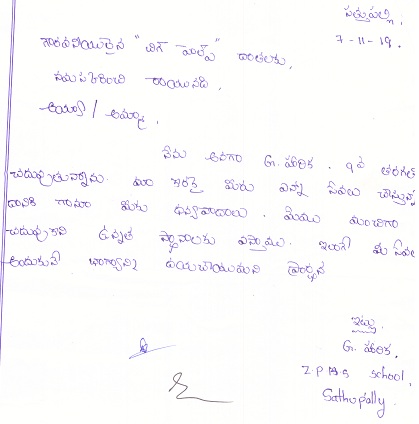 సత్తుపల్లి,
7-11-19.
గౌరవనీయులైన "బిగ్ హెల్ప్" దాతలకు,
నమస్కరించి రాయునది,
అయ్యా / అమ్మా,
నేను అనగా G. హారిక. 9వ తరగతి
చదువుతున్నాను. మా కొరకై మీరు ఎన్నో సేవలు చేస్తున్న
దానికి గాను మీకు ధన్యవాదాలు. మేము మంచిగా
చదువుకుని ఉన్నత స్థానాలకు వస్తాము. ఇలాగే మీ సేవలు
అందుకునే భాగ్యాన్ని దయచేయమని ప్రార్థన
ఇట్లు
G. హారిక.
Z.P.H.S School,
Sathupally.